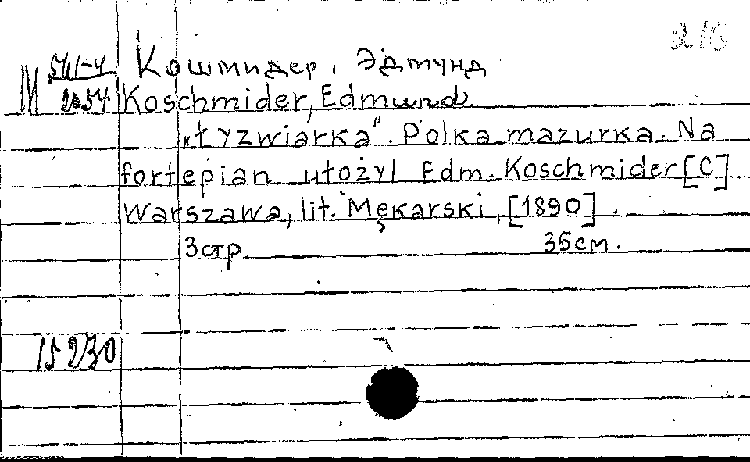 Кошмидер, Эдмунд
М 541-4
2054 Koschmider, Edmund
„Łyzwiarka". Polka mazurka. Na
fortepian ułożył Edm. Koschmider [C]
Warszawa, lit. Mękarski, [1890].
3 стр. 35 см.
15230